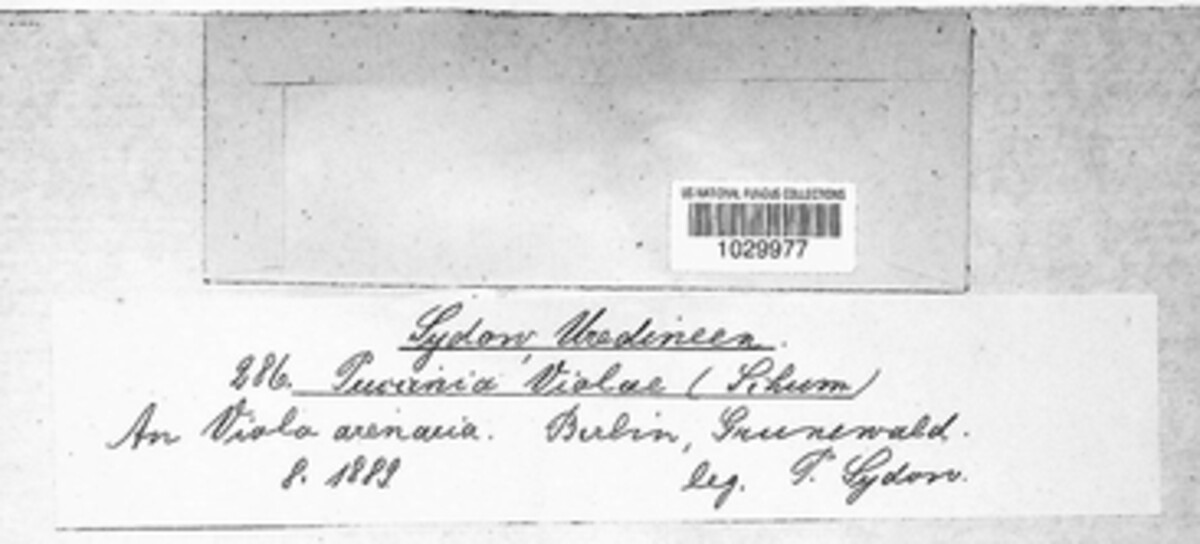 US NATIONAL FUNGUS COLLECTIONS
1029977
Sydow, Uredineen.
286. Puccinia Violae (Schum)
An Viola arenaria. Berlin, Grunewald.
8. 1889 leg. P. Sydow.